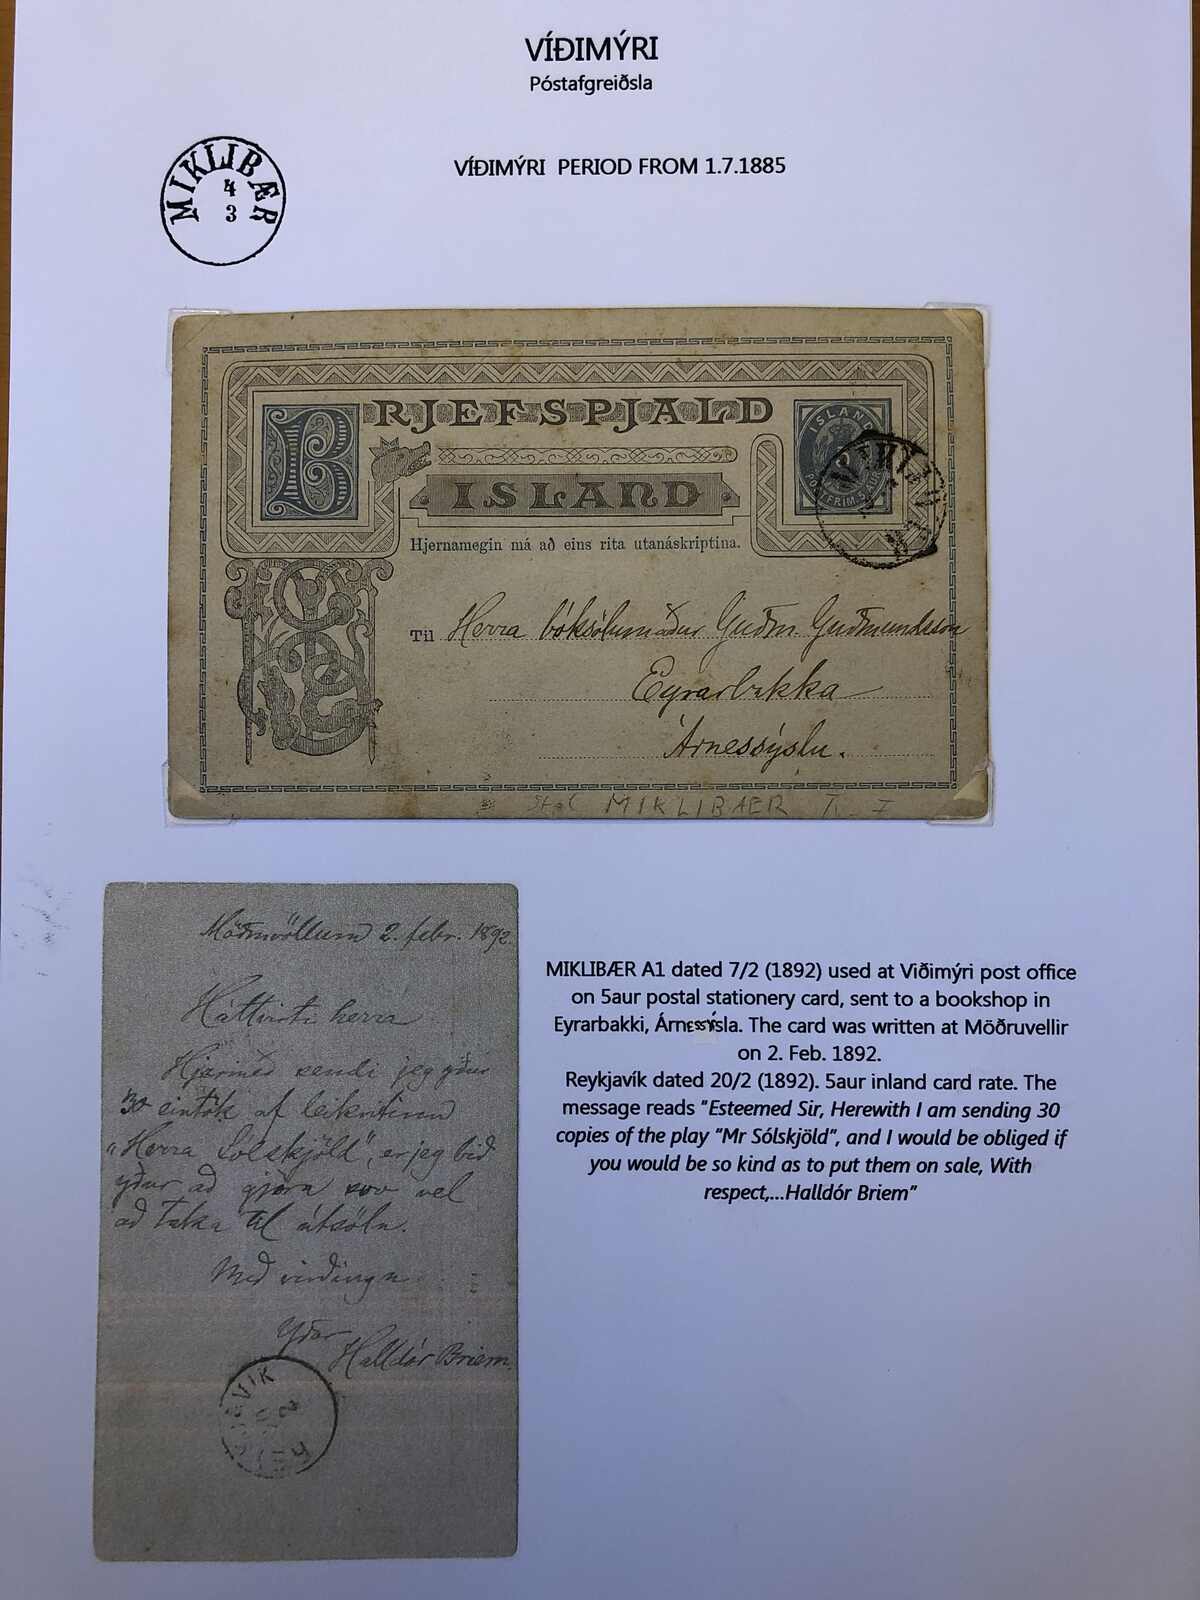 VÍÐIMÝRI
Póstafgreiðsla
VÍÐIMÝRI PERIOD FROM 1.7.1885
MIKLIBÆR
4
3
BRJEFSPJALD
ÍSLAND
ÍSLAND
5
PÓSTFRIM. 5 AUR
Hjernamegin má að eins rita utanáskriptina.
Til Herra bóksölumaður Guðm. Guðmundsson
Eyrarbakka
Árnessýslu.
MIKLIBAER
Möðruvöllum 2. febr. 1892.
Háttvirti herra
Hjermeð sendi jeg yður
30 eintök af leikritinu
"Herra Sólskjöld", er jeg bið
yður að gjöra svo vel
að taka til útsölu.
Með virðingu
Yðar
Halldór Briem.
MIKLIBÆR A1 dated 7/2 (1892) used at Viðimýri post office
on 5aur postal stationery card, sent to a bookshop in
Eyrarbakki, Árnessýsla. The card was written at Möðruvellir
on 2. Feb. 1892.
Reykjavík dated 20/2 (1892). 5aur inland card rate. The
message reads "Esteemed Sir, Herewith I am sending 30
copies of the play "Mr Sólskjöld", and I would be obliged if
you would be so kind as to put them on sale, With
respect,...Halldór Briem"